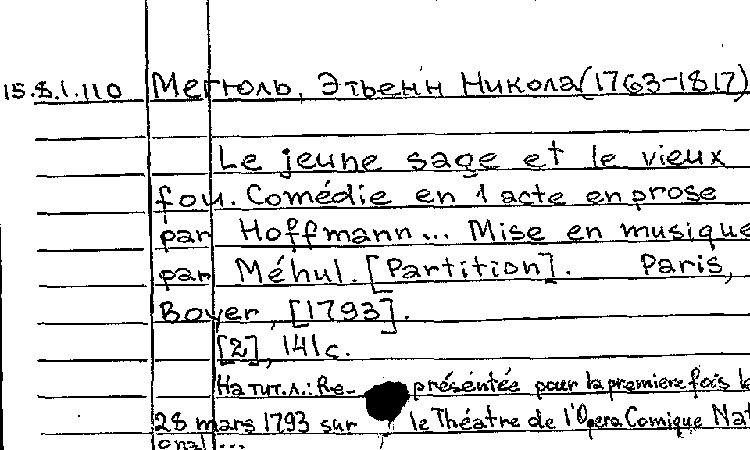 15.8.1.110 Мегюль, Этьенн Никола (1763-1817)
Le jeune sage et le vieux
fou. Comédie en 1 acte en prose
par Hoffmann... Mise en musique
par Méhul. [Partition]. Paris,
Boyer, [1793].
[2], 141 с.
На тит.л.: Re- présentée pour la premiere fois le
28 mars 1793 sur le Théatre de l'Opera Comique Nat
onal...